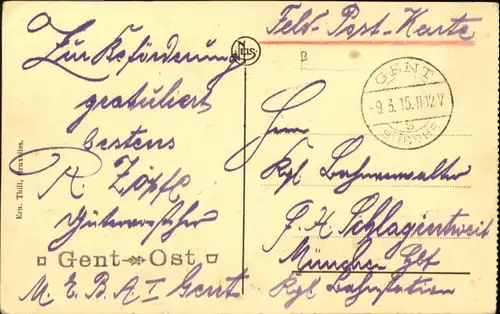 Feld-Post-Karte
Zur Beförderung
gratuliert
bestens
R. Zöpfl
Gütervorsteher
Gent Ost.
M. E. B. A I Gent
Ern. Thill, Bruxelles.
NELS
B
GENT
-9.3.15.11-12V
Herrn
Kgl. Bahnverwalter
F. X. Schlagintweit
München
Kgl. Bahnstation